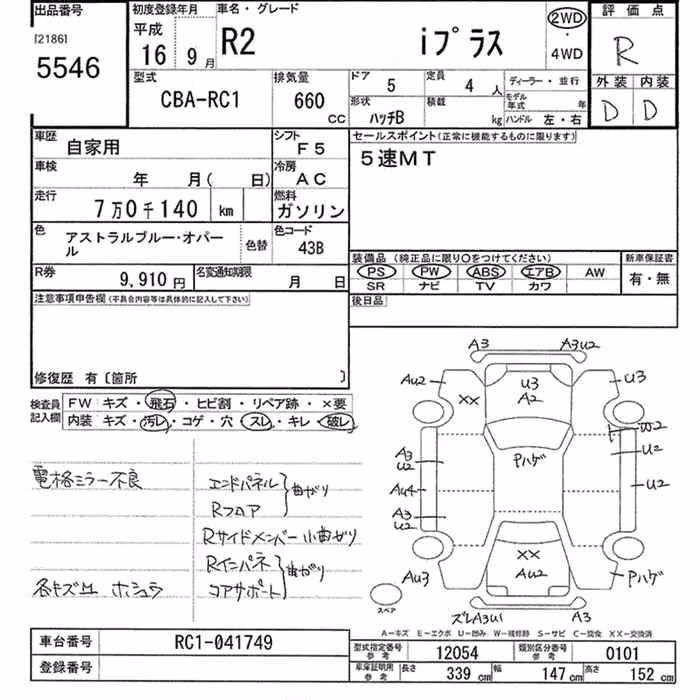 出品番号 初度登録年月 車名・グレード 評価点
[2186] 平成 R2 iプラス 2WD R
5546 16 9月 ・ 4WD
型式 排気量 ドア 5 定員 4人 ディーラー・並行 外装 内装
CBA-RC1 660 CC 形状 ハッチB 積載 kg モデル年式 年 D D
ハンドル 左・右
車歴 自家用 シフト F5 セールスポイント(正常に機能するものに限ります)
車検 年 月( 日) 冷房 AC 5速MT
走行 7万0千140 km 燃料 ガソリン
色 アストラルブルー・オパール 色替 色コード 43B
装備品 (純正品に限り○をつけてください) 新車保証書
R券 9,910円 名変通知期限 月 日 PS PW ABS エアB AW 有・無
SR ナビ TV カワ
注意事項申告欄(不具合内容等は具体的に記入して下さい) 後日品
修復歴 有〔箇所 〕
検査員記入欄 FW キズ・飛石・ヒビ割・リペア跡・×要
内装 キズ・汚レ・コゲ・穴・スレ・キレ・破レ
電格ミラー不良 エンドパネル 曲がり
Rフロア
Rサイドメンバー 小曲ガリ
Rインパネ 曲がり
各キズ凹 ホシュラ コアサポート
A3 A3U2
AU2 XX U3 A2 U3
W2
A3 U2 Pハゲ U2
AU4 U2
A3 U2
XX
AU3 AU2 Pハゲ
スペア ズレA3U1 A3
A-キズ E-エクボ U-凹ミ W-補修跡 S-サビ C-腐食 XX-交換済
車台番号 RC1-041749
登録番号
型式指定番号 参考 12054 類別区分番号 参考 0101
車庫証明用 参考 長さ 339 cm 幅 147 cm 高さ 152 cm